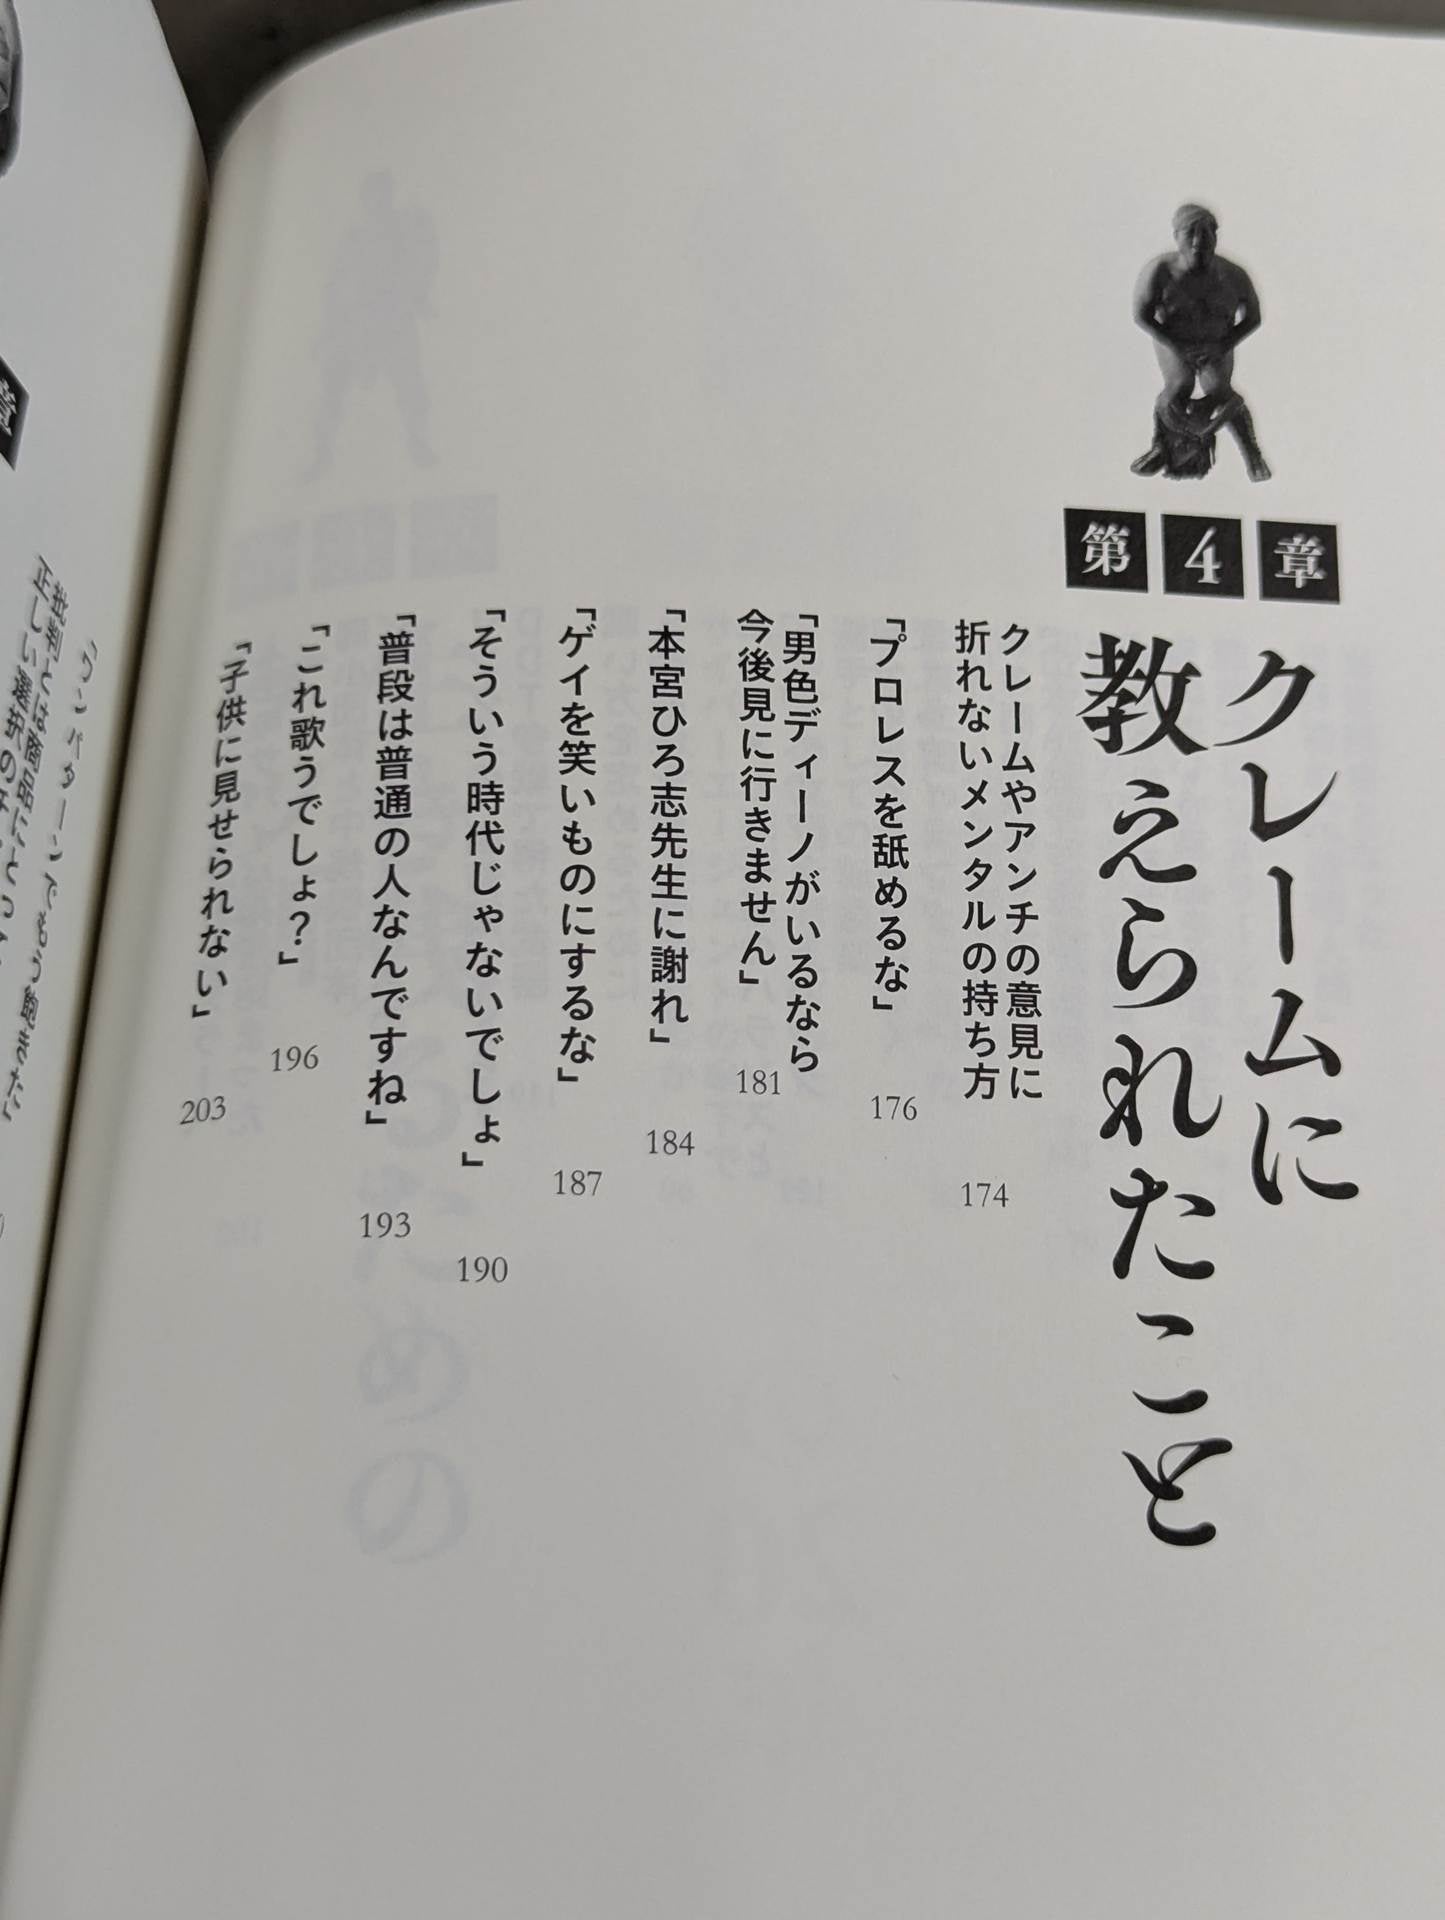 第4章
クレームに
教えられたこと
クレームやアンチの意見に
折れないメンタルの持ち方
174
「プロレスを舐めるな」
176
「男色ディーノがいるなら
今後見に行きません」
181
「本宮ひろ志先生に謝れ」
184
「ゲイを笑いものにするな」
187
「そういう時代じゃないでしょ」
190
「普段は普通の人なんですね」
193
「これ歌うでしょ？」
196
「子供に見せられない」
203
章
「ワンパターンでもう飽きた」
批判とは商品にとって
正しい選択の